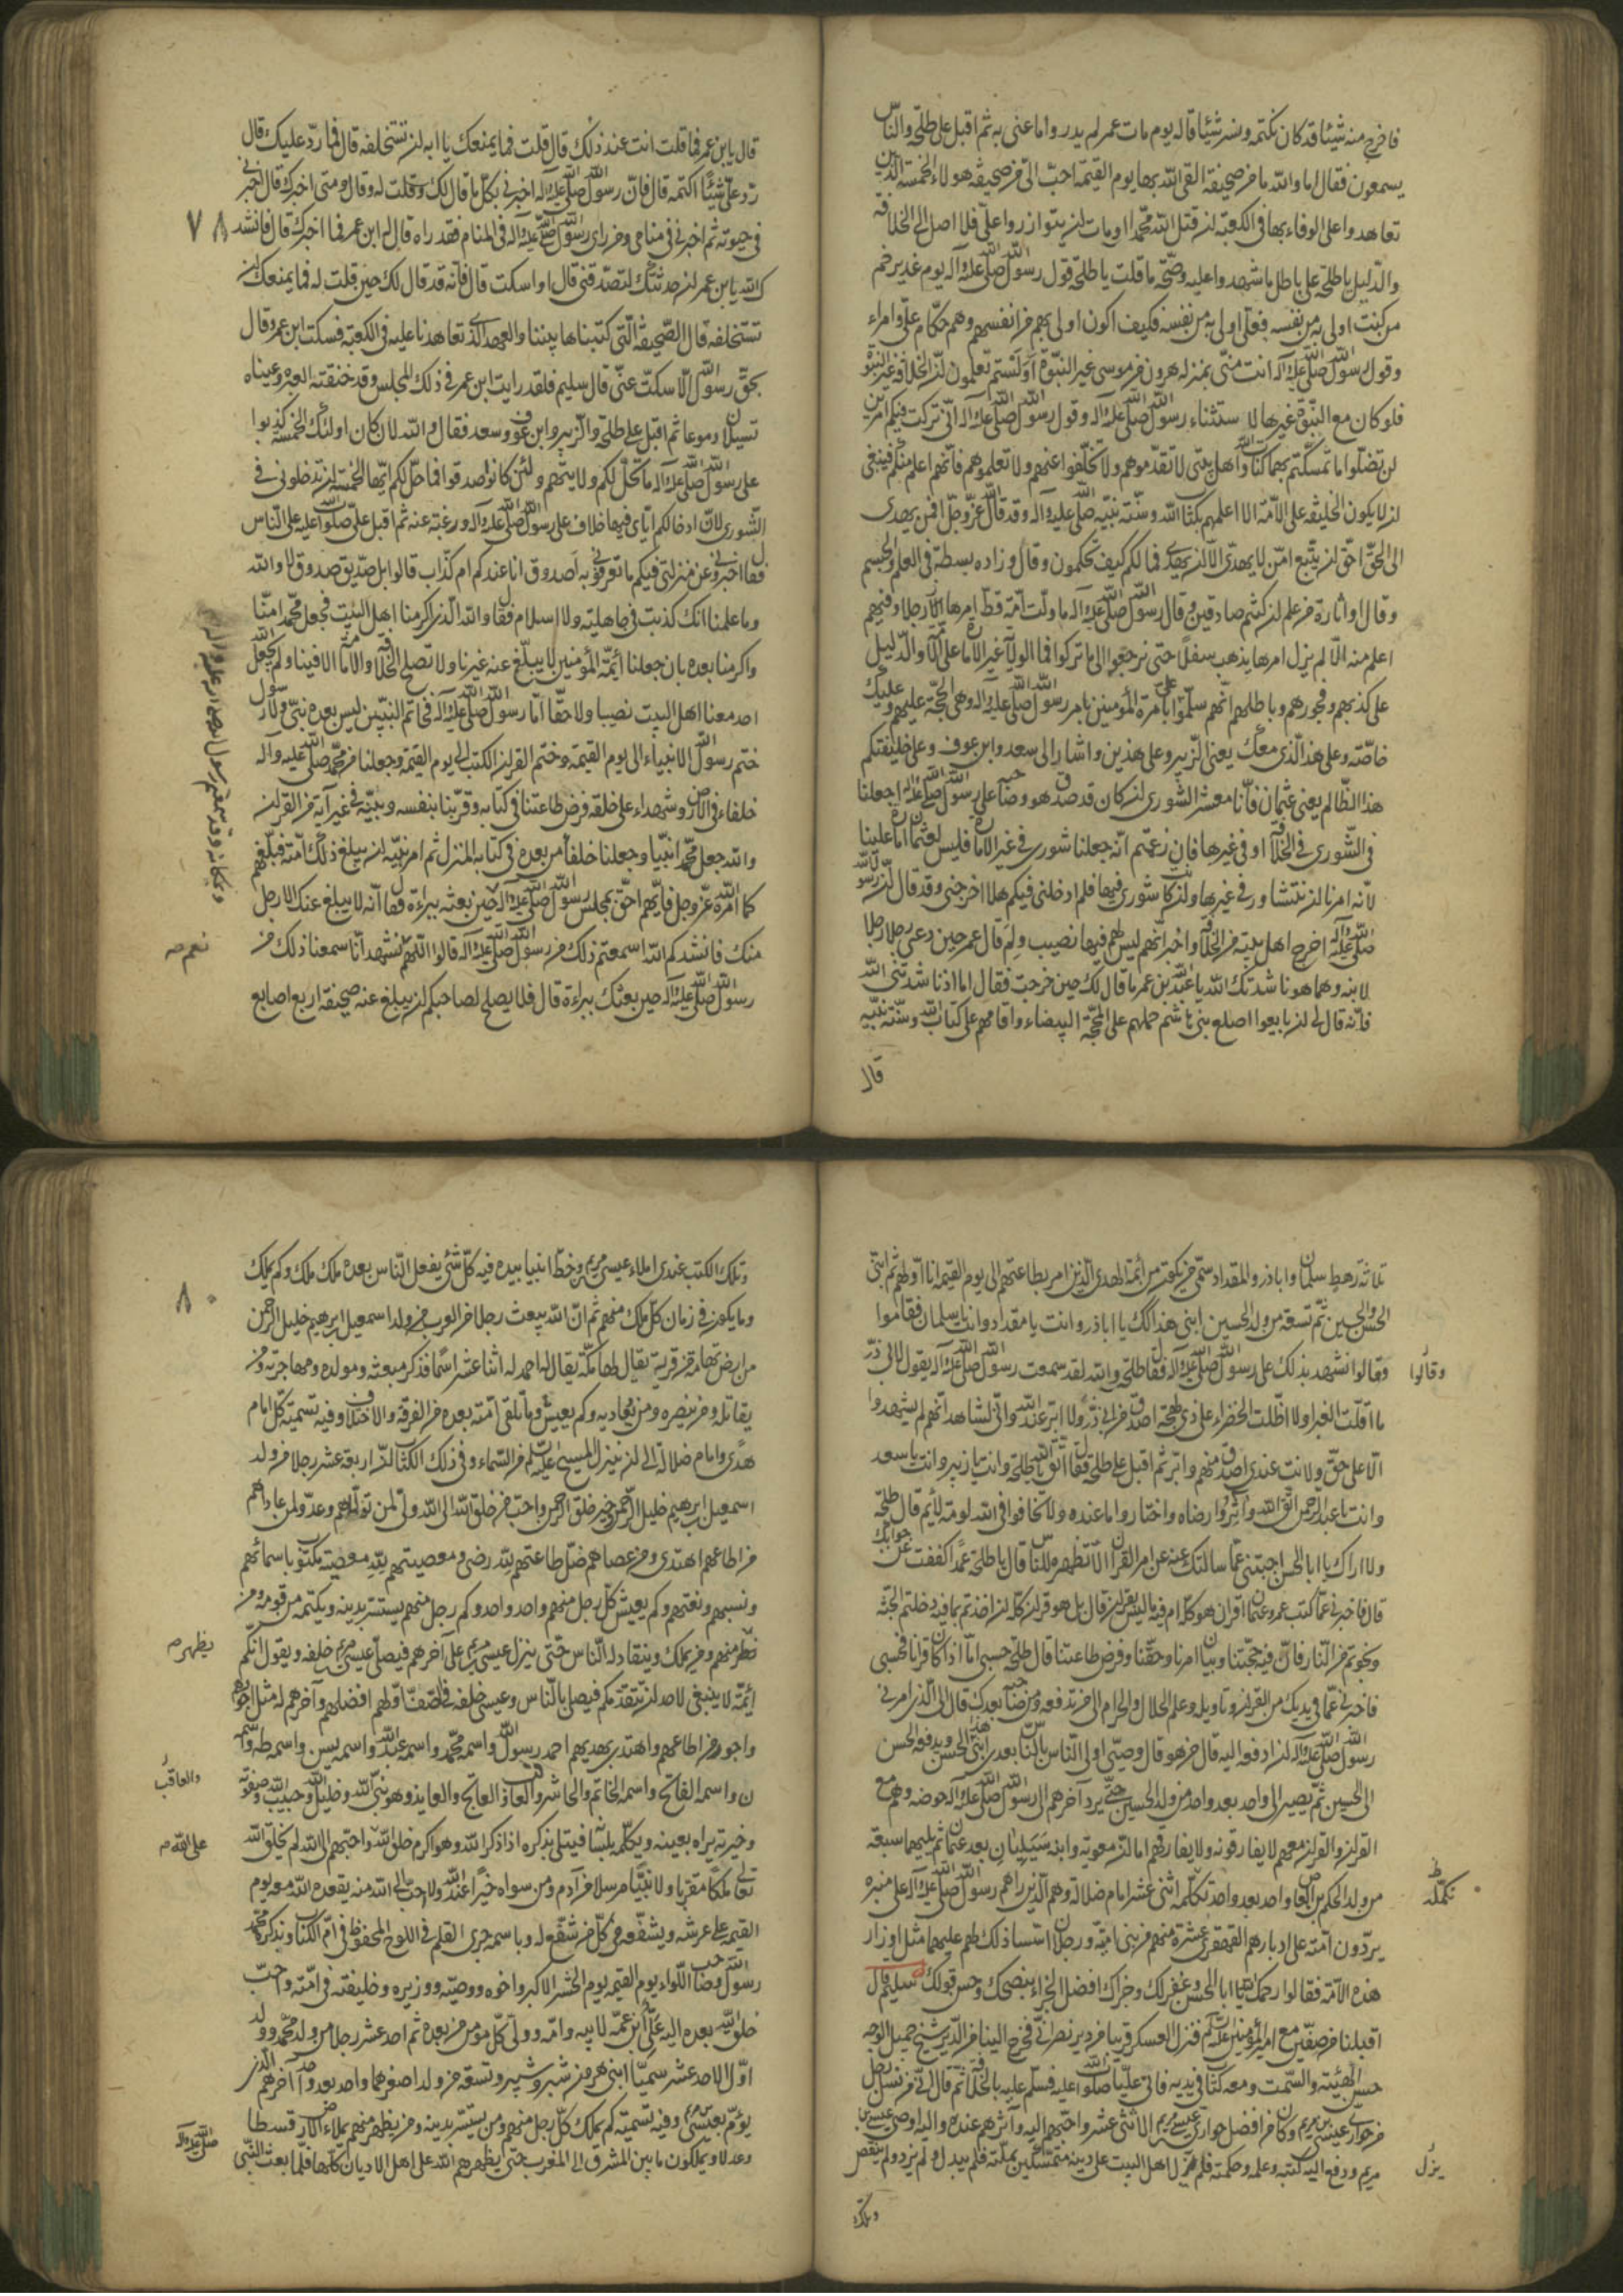 فاخرج منه شيئا قد كان يكتمه وفسر شيئا قاله يوم مات عمر لم يدروا ما عنى به ثم اقبل على طلحة والناس
يسمعون فقال اما والله ما من صحيفة القى الله بها يوم القيمة احب الى من صحيفة هولاء الخمسة الذين
تعاهدوا على الوفاء بها فى الكعبة لن قتل الله محمدا او مات لن يتوازروا على فلا اصل الى الخلافة
والدليل يا طلحة على باطل ما شهدوا عليه وصحة ما قلت يا طلحة قول رسول الله صلى الله عليه وآله يوم غدير خم
من كنت اولى به من نفسه فعلى اولى به من نفسه فكيف اكون اولى بهم من انفسهم وهم حكام على وامراء
وقول رسول الله صلى الله عليه وآله انت منى بمنزلة هرون من موسى غير النبوة اولستم تعلمون لن الخلافة غير النبوة
فلو كان مع النبوة غيرها لاستثناه رسول الله صلى الله عليه وآله وقول رسول الله صلى الله عليه وآله انى تركت فيكم امرين
لن تضلوا ما تمسكتم بهما كتاب الله واهل بيتى لا تقدموهم ولا تخلفوا عنهم ولا تعلموهم فانهم اعلم منكم فينبغى
لن لا يكون الخليفة على الامة الا اعلمهم بكتاب الله وسنة نبيه صلى الله عليه وآله وقد قال الله عز وجل افمن يهدى
الى الحق احق لن يتبع امن لا يهدى الا لن يهدى فما لكم كيف تحكمون وقال وزاده بسطة فى العلم والجسم
وقال او اثارة من علم لن كنتم صادقين وقال رسول الله صلى الله عليه وآله ما ولت امة قط امرها رجلا وفيهم
اعلم منه الا لم يزل امرها يذهب سفلا حتى يرجعوا الى ما تركوا فما الولاية غير الامارة على الامة والدليل
على كذبهم وفجورهم وباطلهم انهم سلموا على بامرة المؤمنين بامر رسول الله صلى الله عليه وآله وهى الحجة عليهم وعليك
خاصة وعلى هذا الذى معك يعنى الزبير وعلى هذين واشار الى سعد وابن عوف وعلى خليفتكم
هذا الظالم يعنى عثمان فانا معشر الشورى
فى الشورى فى الخلافة او فى غيرها فان زعمتم انه جعلنا شورى فى غير الامارة فليس لعثمان امارة علينا
لانه امرنا لن نتشاور فى غيرها ولن كانت شورى فيها فلم ادخلنى فيكم هلا اخرجنى وقد قال لن رسول الله
صلى الله عليه وآله اخرج اهل بيته من الخلافة واخبر انهم ليس لهم فيها نصيب ولم قال عمر حين دعى رجلا رجلا
لابنه وها هو ناشدتك الله يا عبد الله بن عمر ما قال لك حين خرجت فقال اما اذ ناشدتنى الله
فانه قال لى لن بايعوا اصلع بنى هاشم حملهم على المحجة البيضاء واقامهم على كتاب الله وسنة نبيه
قال
قال يابن عمر فما قلت انت عند ذلك قال قلت فما يمنعك يا ابه لن تستخلفه قال فما رد عليك قال
رد على شيئا اكتمه قال فان رسول الله صلى الله عليه وآله اخبرنى بكل ما قال لك وقلت له وقال ومتى اخبرك قال اخبرنى
فى حيوته ثم اخبرنى فى منامى ومن راى رسول الله صلى الله عليه وآله فى المنام فقد راه قال له ابن عمر فما اخبرك قال فانشدك
٧٨
الله يابن عمر لن حدثتك لتصدقنى قال او اسكت قال فانه قد قال لك حين قلت له فما يمنعك لن
تستخلفه قال الصحيفة التى كتبناها بيننا والعهد الذى تعاهدنا عليه فى الكعبة فسكت ابن عمر وقال
بحق رسول الله الا سكت عنى قال سليم فلقد رايت ابن عمر فى ذلك المجلس وقد خنقته العبرة وعيناه
تسيلان دموعا ثم اقبل على طلحة والزبير وابن عوف وسعد فقال والله لان كان اولئك الخمسة كذبوا
على رسول الله صلى الله عليه وآله ما تحل لكم ولايتهم ولئن كانوا صدقوا فما حل لكم ايها الخمسة لن تدخلونى فى
الشورى لان ادخالكم اياى فيها خلاف على رسول الله صلى الله عليه وآله ورغبة عنه ثم اقبل على صلوات الله عليه على الناس
فقال اخبرونى عن منزلتى فيكم وما تعرفونى به اصدوق انا عندكم ام كذاب قالوا بل صديق صدوق لا والله
وما علمنا انك كذبت فى جاهلية ولا اسلام فقال والله الذى اكرمنا اهل البيت فجعل محمدا منا
واكرمنا بعده بان جعلنا ائمة المؤمنين لا يبلغ عنه غيرنا ولا تصلح الخلافة والامامة الا فينا ولم يجعل الله
احد معنا اهل البيت نصيبا ولا حقا اما رسول الله صلى الله عليه وآله فخاتم النبيين ليس بعده نبى ولا رسول
ختم رسول الله الانبياء الى يوم القيمة وختم القرآن الكتب الى يوم القيمة وجعلنا من محمد صلى الله عليه وآله
خلفاء فى الارض وشهداء على خلقه فرض طاعتنا فى كتابه وقرننا بنفسه ونبيه فى غير آية من القرآن
والله جعل محمدا نبيا وجعلنا خلفاء من بعده فى كتابه المنزل ثم امر نبيه لن يبلغ ذلك امته فبلغهم
كما امره الله عز وجل فايهم احق بمجلس رسول الله صلى الله عليه وآله حين بعثه ببراءة فقال انه لا يبلغ عنك الا رجل
منك فانشدكم الله اسمعتم ذلك من رسول الله صلى الله عليه وآله قالوا اللهم نشهد انا سمعنا ذلك من
نعم صه
رسول الله صلى الله عليه وآله حين بعثك ببراءة قال فلا يصلح لصاحبكم لن يبلغ عنه صحيفة اربع اصابع
ثلاثة رهط سلمان واباذر والمقداد سمى من يكون من ائمة الهدى الذين امر بطاعتهم الى يوم القيمة انا اولهم ثم ابنى
الحسن والحسين ثم تسعة من ولد الحسين ابنى هذا كذلك يا اباذر وانت يا مقداد وانت يا سلمان فقاموا
وقالوا نشهد بذلك على رسول الله صلى الله عليه وآله فقال طلحة والله لقد سمعت رسول الله صلى الله عليه وآله يقول لابى ذر
وقالوا
ما اقلت الغبراء ولا اظلت الخضراء على ذى لهجة اصدق من ابى ذر ولا ابر عند الله وانى لشاهد انهم لم يشهدوا
الا على حق ولانت عندى اصدق منهم وابر ثم اقبل على طلحة فقال اتق الله يا طلحة وانت يا زبير وانت يا سعد
وانت يا عبد الرحمن اتقوا الله واثروا رضاه واختاروا ما عنده ولا تخافوا فى الله لومة لائم قال طلحة
ولا اراك يا ابا الحسن اجبتنى عما سالتك عنه عن امر القرآن الا تظهره للناس قال يا طلحة عمدا كففت عن جوابك
قال فاخبرنى عما كتب عمر وعثمان اقران هو كله ام فيه ما ليس بقرآن قال بل هو قرآن كله لن اخذتم بما فيه دخلتم الجنة
ونجوتم من النار فان فيه حجتنا وبيان امرنا وحقنا وفرض طاعتنا قال طلحة حسبى اما اذا كان قرانا فحسبى
فاخبرنى عما فى يديك من القرآن وتاويله وعلم الحلال والحرام الى من تدفعه ومن صاحبه بعدك قال الى الذى امرنى
رسول الله صلى الله عليه وآله لن ادفعه اليه قال من هو قال وصيى واولى الناس بالناس بعدى ابنى هذا الحسن ويدفعه الحسن
الى الحسين ثم يصير الى واحد بعد واحد من ولد الحسين حتى يرد آخرهم الى رسول الله صلى الله عليه وآله حوضه وهم مع
القرآن والقرآن معهم لا يفارقونه ولا يفارقهم اما لن معوية وابنه سيليان بعد عثمان ثم يليهما سبعة
من ولد الحكم بن العاص واحد بعد واحد تكملة اثنى عشر امام ضلالة وهم الذين راهم رسول الله صلى الله عليه وآله على منبره
تكملة
يردون امته على ادبارهم القهقرى عشرة منهم من بنى امية ورجلان اسسا ذلك لهم عليهما مثل اوزار
هذه الامة فقالوا رحمك الله يا ابا الحسن وغفر لك وجزاك افضل الجزاء بنصحك وحسن قولك سليم قال
اقبلنا من صفين مع امير المؤمنين عليه السلام فنزل العسكر قريبا من دير نصرانى فخرج الينا من الدير شيخ جميل الوجه
حسن الهيئة والسمت ومعه كتاب فى يديه فاتى عليا صلوات الله عليه فسلم عليه بالخلافة ثم قال انى من نسل رجل
من حوارى عيسى بن مريم وكان من افضل حوارى عيسى بن مريم الاثنى عشر واحبهم اليه وآثرهم عنده واليه اوصى عيسى بن
مريم ودفع اليه كتبه وعلمه وحكمته فلم يزل اهل البيت على دينه متمسكين بملته فلم يبدل ولم يزد ولم ينقص
يزل
وتلك
وتلك الكتب عندى املاء عيسى بن مريم وخط ابينا بيده فيه كل شئ يفعل الناس بعده ملك ملك وكم يملك
٨٠
وما يكون فى زمان كل ملك منهم ثم ان الله يبعث رجلا من العرب من ولد اسمعيل بن ابرهيم خليل الرحمن
من ارض تهامة من قرية يقال لها مكة يقال له احمد له اثنا عشر اسما فذكر مبعثه ومولده ومهاجرته ومن
يقاتله ومن ينصره ومن يعاديه وكم يعيش وما تلقى امته بعده من الفرقة والاختلاف وفيه تسمية كل امام
هدى وامام ضلالة الى لن ينزل المسيح عليه السلام من السماء وفى ذلك الكتاب لن اربعة عشر رجلا من ولد
اسمعيل بن ابرهيم خليل الرحمن خير من خلق الرحمن واحب من خلق الله الى الله ولى لمن تولاهم وعدو لمن عاداهم
من اطاعهم اهتدى ومن عصاهم ضل طاعتهم لله رضى ومعصيتهم لله معصية مكتوب باسمائهم
ونسبهم ونعتهم وكم يعيش كل رجل منهم واحد واحد وكم رجل منهم يستتر بدينه ويكتمه من قومه ومن
يظهر منهم ومن يملك وينقاد له الناس حتى ينزل عيسى بن مريم على آخرهم فيصلى عيسى بن مريم خلفه ويقول انكم
يظهر صه
ائمة لا ينبغى لاحد لن يتقدمكم فيصلى بالناس وعيسى خلفه فى الصف اولهم افضلهم وآخرهم له مثل اجورهم
واجور من اطاعهم واهتدى بهديهم احمد رسول الله واسمه محمد واسمه عبد الله واسمه يس واسمه طه واسمه
ن واسمه الفاتح واسمه الخاتم والحاشر والعاقب والعابد وهو نبى الله وخليل الله وحبيب الله وصفوته
والعاقب
وخيرته يراه بعينه ويكلمه بلسانه فيتلى بذكره اذا ذكر الله وهو اكرم خلق الله واحبهم الى الله لم يخلق الله
على الله م
تعالى ملكا مقربا ولا نبيا مرسلا من آدم ومن سواه خيرا عند الله ولا احب الى الله منه يقعده الله معه يوم
القيمة على عرشه ويشفعه فى كل من شفع له وباسمه جرى القلم فى اللوح المحفوظ فى ام الكتاب وبذكره محمد
رسول الله وصاحب اللواء يوم القيمة يوم الحشر الاكبر واخوه ووصيه ووزيره وخليفته فى امته واحب
خلق الله بعده اليه على ابن عمه لابيه وامه وولى كل مؤمن من بعده ثم احد عشر رجلا من ولد محمد وولده
اول الاحد عشر سميا ابنى هرون شبر وشبير وتسعة من ولد اصغرهما واحد بعد واحد آخرهم الذى
يؤم بعيسى بن مريم وفيه تسميته كم يملك كل رجل منهم ومن يستتر بدينه ومن يظهر منهم يملاء الارض قسطا
وعدلا ويملكون ما بين المشرق الى المغرب حتى يظهرهم الله على اهل الاديان كلها فلما بعث النبى
صلى الله عليه وآله